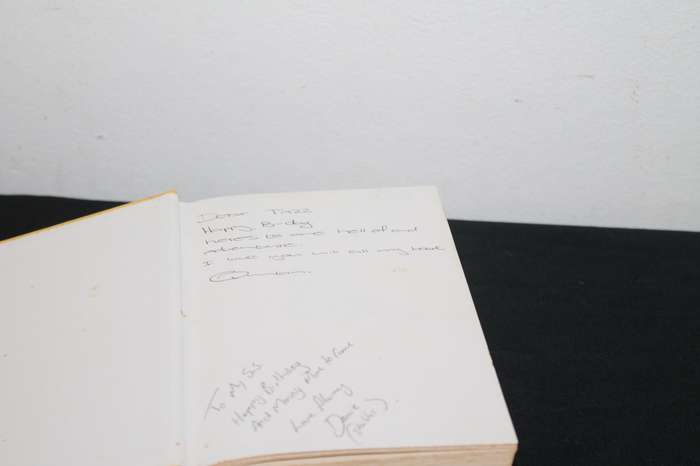 Dear Tazz
Happy B-day
heres to one hell of and
adventure.
I love you with all my heart
To my Sis
Happy Birthday
And Many More to Come
Love Always